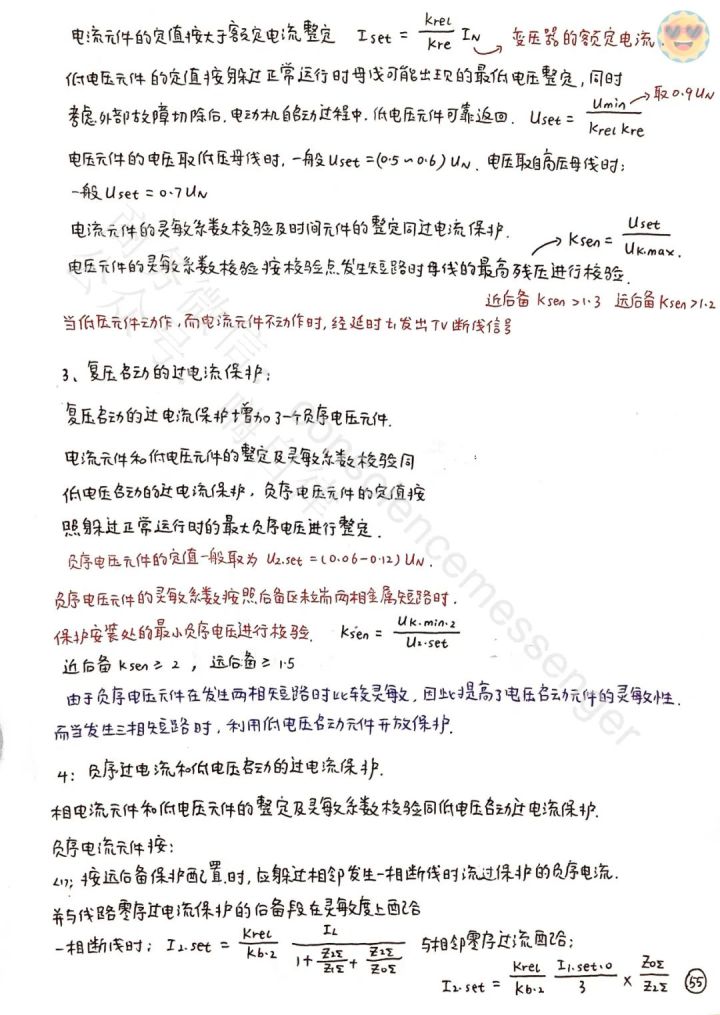 电流元件的定值按大于额定电流整定 Iset = Krel/Kre IN → 变压器的额定电流.
低电压元件的定值按躲过正常运行时母线可能出现的最低电压整定,同时
考虑外部故障切除后,电动机自启动过程中,低电压元件可靠返回. Uset = Umin/KrelKre → 取0.9UN
电压元件的电压取低压母线时,一般Uset=(0.5~0.6)UN、电压取自高压母线时:
一般Uset=0.7UN
电流元件的灵敏系数校验及时间元件的整定同过电流保护.
电压元件的灵敏系数校验按校验点发生短路时母线的最高残压进行校验. → Ksen = Uset/UK.max.
近后备Ksen>1.3 远后备Ksen>1.2
当低压元件动作,而电流元件不动作时,经延时t1发出TV断线信号
3、复压启动的过电流保护:
复压启动的过电流保护增加了一个负序电压元件.
电流元件和低电压元件的整定及灵敏系数校验同
低电压启动的过电流保护,负序电压元件的定值按
照躲过正常运行时的最大负序电压进行整定.
负序电压元件的定值一般取为 U2.set=(0.06-0.12)UN.
负序电压元件的灵敏系数按照后备区末端两相金属短路时.
保护安装处的最小负序电压进行校验. Ksen = UK.min.2/U2.set
近后备Ksen≥2,远后备≥1.5
由于负序电压元件在发生两相短路时比较灵敏,因此提高了电压启动元件的灵敏性.
而当发生三相短路时,利用低电压启动元件开放保护.
4:负序过电流和低电压启动的过电流保护.
相电流元件和低电压元件的整定及灵敏系数校验同低电压启动过电流保护.
负序电流元件按:
<1>;按远后备保护配置时,应躲过相邻发生一相断线时流过保护的负序电流.
并与线路零序过电流保护的后备段在灵敏度上配合
一相断线时; I2.set = Krel/Kb.2 IL/(1+Z2Σ/Z1Σ+Z2Σ/Z0Σ) 与相邻零序过流配合;
I2.set = Krel/Kb.2 I1.set.0/3 × Z0Σ/Z2Σ 55
consciencemessenger